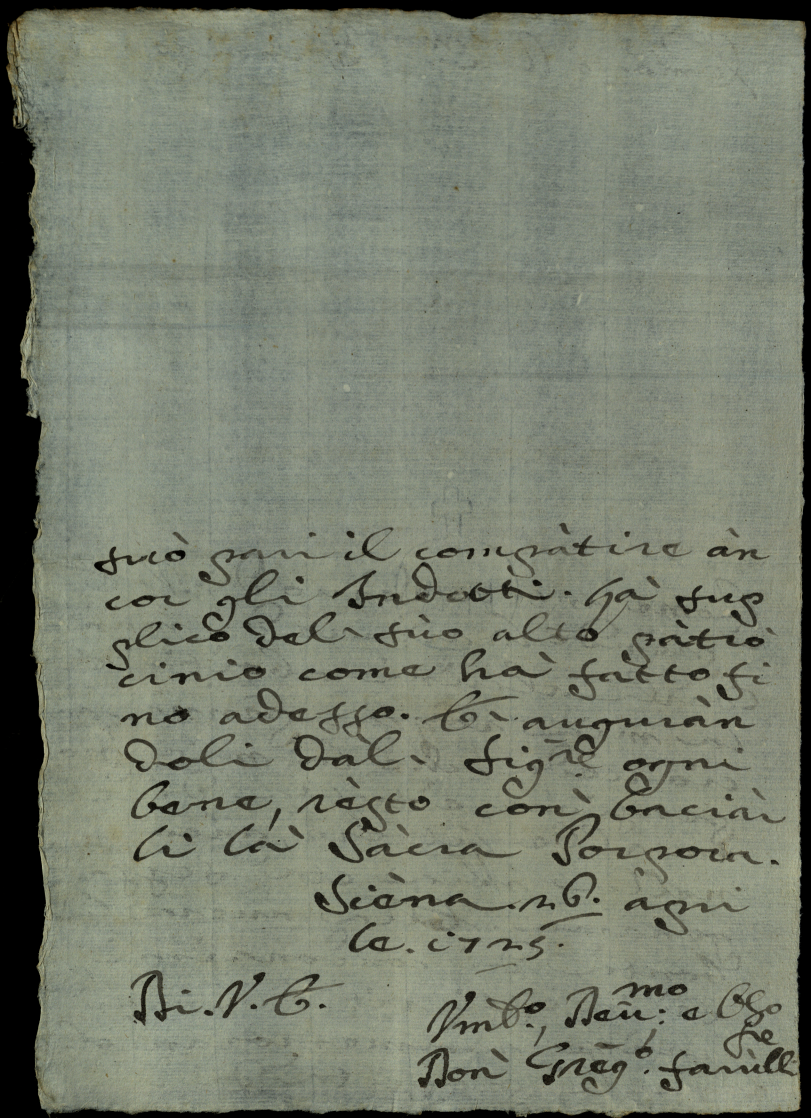 suò pari il compàtire àn
cor gli Indotti. hà sup
plico del suo alto pàtrò
cinio come hà fàtto fi
no adesso. E auguràn
doli dal Sig.re ogni
bene, rèsto con bàciàr
li là Sàcra Porpora.
Sièna. 26. àpri
le. 1725.
Di. V. E.
Umil.o, Deu:mo e Obo
Se
Don Grèg.o fanulli